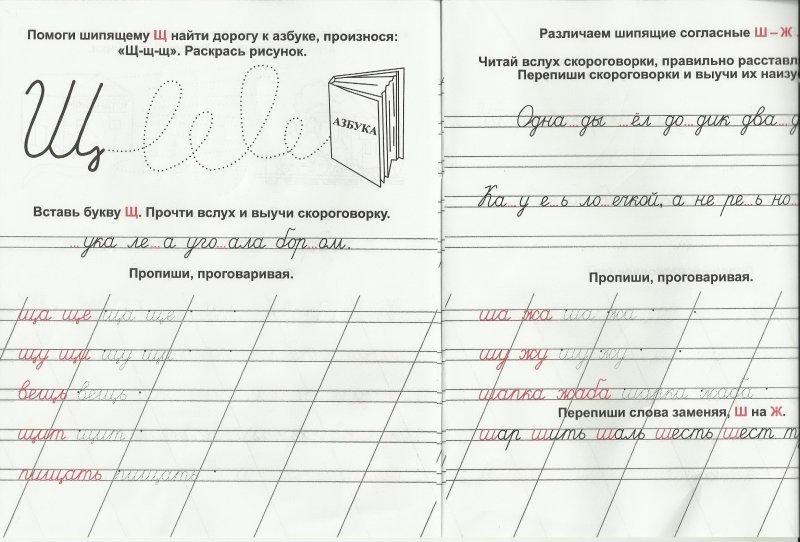 Помоги шипящему Щ найти дорогу к азбуке, произнося:
«Щ-щ-щ». Раскрась рисунок.
Щ
АЗБУКА
Вставь букву Щ. Прочти вслух и выучи скороговорку.
...ука ле...а уго...ала бор...ом.
Пропиши, проговаривая.
ща ще ща ще
щу щи щу щи
вещь вещь
щит щит
пищать пищать
Различаем шипящие согласные Ш – Ж
Читай вслух скороговорки, правильно расставл
Перепиши скороговорки и выучи их наизу
Одна...ды ...ёл до...дик два...д
Ка...у е...ь ло...ечкой, а не ре...ь но...
Пропиши, проговаривая.
ша жа ша жа
шу жу шу жу
шапка жаба шапка жаба
Перепиши слова заменяя, Ш на Ж.
шар шить шаль шесть шест т